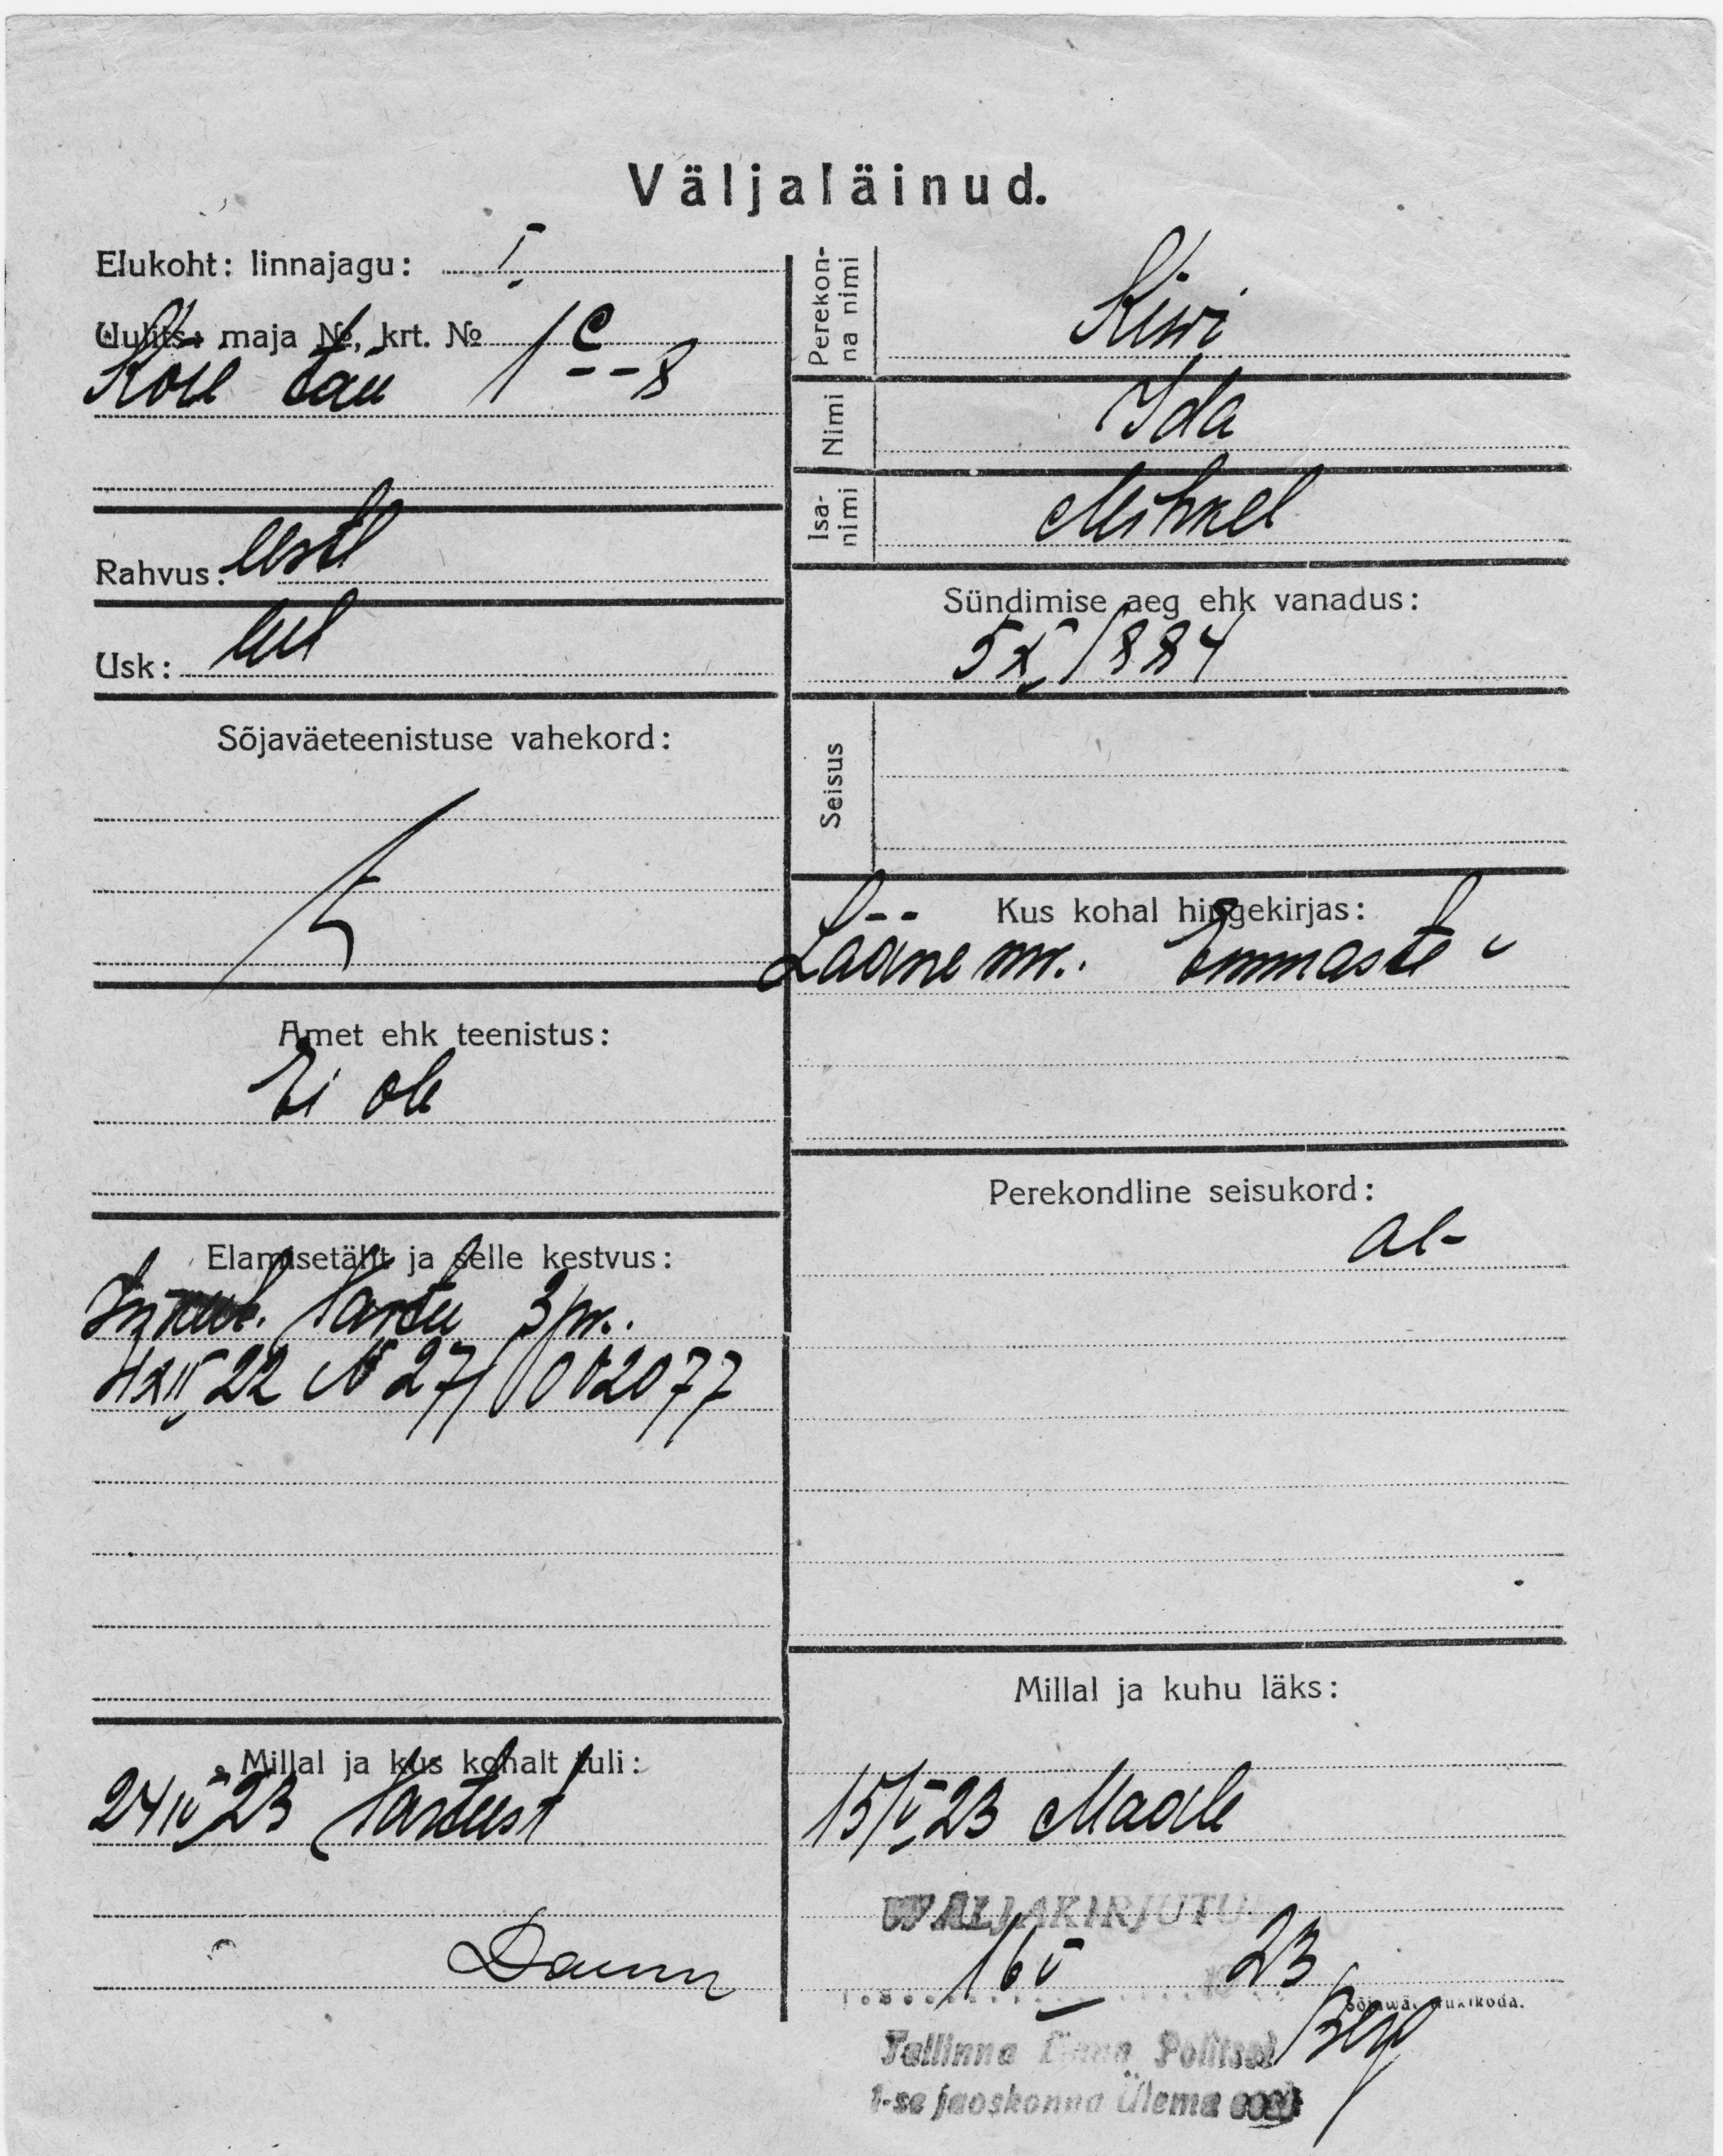 Väljaläinud.
Elukoht: linnajagu: I
Uulits: maja №, krt. № 1 c -- 8
Köie tän
Rahvus: eesti
Usk: lut
Sõjaväeteenistuse vahekord:
Amet ehk teenistus:
Ei ole
Elamisetäht ja selle kestvus:
Tartu 3 pr.
4 XII 22 № 271/002077
Millal ja kus kohalt tuli:
24 IV 23 Tartust
Perekonna nimi Kiwi
Nimi Ida
Isanimi Mihkel
Sündimise aeg ehk vanadus:
5 X 1884
Seisus
Kus kohal hingekirjas:
Lääne mk. Emmaste v
Perekondline seisukord:
al-
Millal ja kuhu läks:
15/V 23 Maale
WÄLJAKIRJUTU
16 V 1923
Sõjawäe trükikoda.
Tallinna Linna Politsei
1-se jaoskonna Ülema
Berg